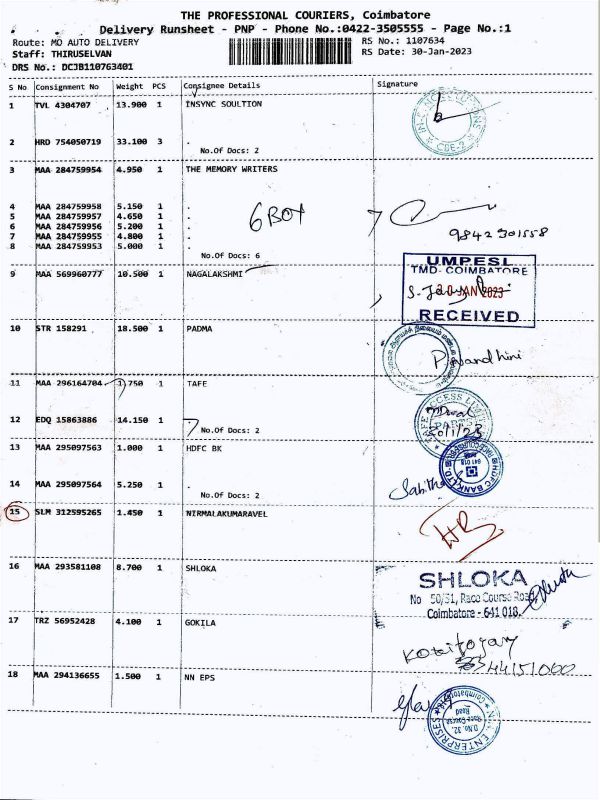 THE PROFESSIONAL COURIERS, Coimbatore
Delivery Runsheet - PNP - Phone No.:0422-3505555 - Page No.:1
Route: MO AUTO DELIVERY
RS No.: 1107634
Staff: THIRUSELVAN
RS Date: 30-Jan-2023
DRS No.: DCJB110763401
S No Consignment No Weight PCS Consignee Details Signature
1 TVL 4304707 13.900 1 INSYNC SOULTION
2 HRD 754050719 33.100 3 .
No.Of Docs: 2
3 MAA 284759954 4.950 1 THE MEMORY WRITERS
4 MAA 284759958 5.150 1 .
5 MAA 284759957 4.650 1 .
6 MAA 284759956 5.200 1 .
7 MAA 284759955 4.800 1 .
8 MAA 284759953 5.000 1 .
6 BOX
9842301558
No.Of Docs: 6
9 MAA 569960777 10.500 1 NAGALAKSHMI
UMPESL
TMD- COIMBATORE
30 JAN 2023
RECEIVED
10 STR 158291 18.500 1 PADMA
11 MAA 296164704 1.750 1 TAFE
12 EDQ 15863886 14.150 1
No.Of Docs: 2
30/1/23
13 MAA 295097563 1.000 1 HDFC BK
HDFC BANK LTD
641 018
14 MAA 295097564 5.250 1 .
No.Of Docs: 2
15 SLM 312595265 1.450 1 NIRMALAKUMARAVEL
16 MAA 293581108 8.700 1 SHLOKA
SHLOKA
No 50/51, Race Course Road,
Coimbatore - 641 018.
17 TRZ 56952428 4.100 1 GOKILA
18 MAA 294136655 1.500 1 NN EPS
ENTERPRISES
D.No. 32,
Race Course
Road
Coimbatore